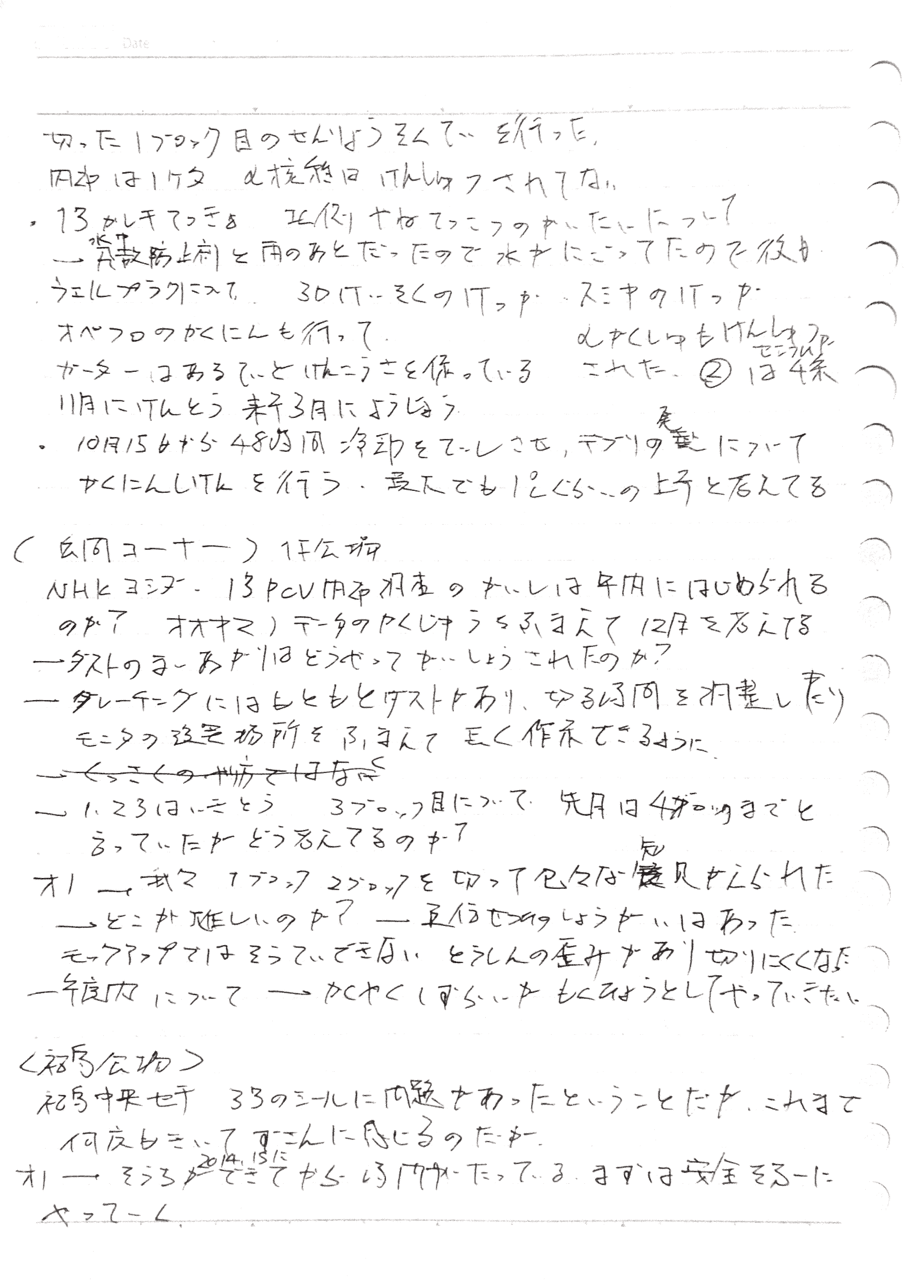 Date
切った1ブロック目のせんじょうそくていを行った。
内部は1ケタ α核種は けんしゅつされてない
・1号がしきてっきょ 北側 やねてっこつのかいたいについて
水中
→飛散防止剤と雨のあとだったので水がにごってたので後日
ウェルプラグについて 30 スミヤの
オペフロのかくにんも行って αかくしゅもけんしゅつが
ガーダーはあるていどけんこうさを保っている された。② は4条
11月にけんとう 来年3月に
・10月15日から48時間 冷却をていしさせ、デブリの熱について
かくにんしけんを行う。最大でも1℃くらいの上昇と考えてる
(質問コーナー) 1F会場
NHKヨシダ・1号PCV内部調査のかいしは年内にはじめられる
のか? オオヤマ)データのかくじゅうもふまえて12月を考えてる
→ダストのまいあがりはどうやってかいしょうされたのか?
→グレーチングにはもともとダストがあり、切る時間を調整したり
モニタの設置場所をふまえて 長く作業できるように
→くっさくのやり方ではなく
→1.2 3ブロック目について 先月は4ブロックまでと
言っていたがどう考えてるのか?
オノ→我々 1ブロック 2ブロックを切って色々な知見がえられた
→どこが難しいのか? →
モックアップではそうていできない とうしんの歪みがあり切りにくくなった
→年度内について → かくやくしずらいが もくひょうとしてやっていきたい
<福島会場>
福島中央テレ 3号のシールに問題があったということだが、これまで
何度もきいてずさんに感じるのだが。
オノ→そうちが2014、15にできてから時間がたっている。まずは安全を第一に
やってーく